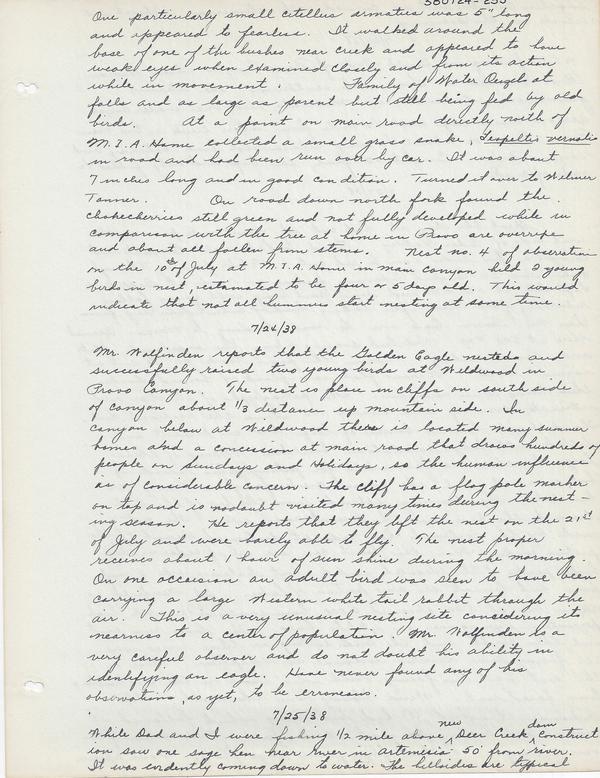 580724-255
One particularly small citellus armatus was 5" long
and appeared to fearless. It walked around the
base of one of the bushes near creek and appeared to have
weak eyes when examined closely and from its action
while in movement. Family of Water Ouzels at
falls and as large as parent but still being fed by old
birds. At a point on main road directly north of
M.I.A. Home collected a small grass snake,
in road and had been run over by car. It was about
7 inches long and in good condition. Turned it over to Wilmer
Tanner. On road down north fork found the
chokecherries still green and not fully developed while in
comparison with the tree at home in Provo are overripe
and about all fallen from stems. Nest no. 4 of observation
on the 10th of July at M.I.A. Home in main canyon held 2 young
birds in nest, estamated to be four or 5 days old. This would
indicate that not all hummies start nesting at same time.
7/24/38
Mr. Wolfinden reports that the Golden Eagle nested and
successfully raised two young birds at Wildwood in
Provo Canyon. The nest is place in cliffs on south side
of canyon about 1/3 distance up mountain side. In
canyon below at Wildwood there is located many summer
homes and a concession at main road that draws hundreds of
people on Sundays and Holidays, so the human influence
is of considerable concern. The cliff has a flag pole marker
on top and is nodoubt visited many times during the nest-
ing season. He reports that they left the nest on the 21st
of July and were barely able to fly. The nest proper
receives about 1 hour of sun shine during the morning.
On one occaision an adult bird was seen to have been
carrying a large Western white tail rabbit through the
air. This is a very unusual nesting site considering its
nearness to a center of population. Mr. Wolfinden is a
very careful observer and do not doubt his ability in
identifying an eagle. Have never found any of his
observations, as yet, to be erroneous.
7/25/38
While Dad and I were fishing 1/2 mile above new Deer Creek dam construct
ion saw one sage hen near river in Artemesia 50' from river.
It was evidently coming down to water. The hillsides are typical